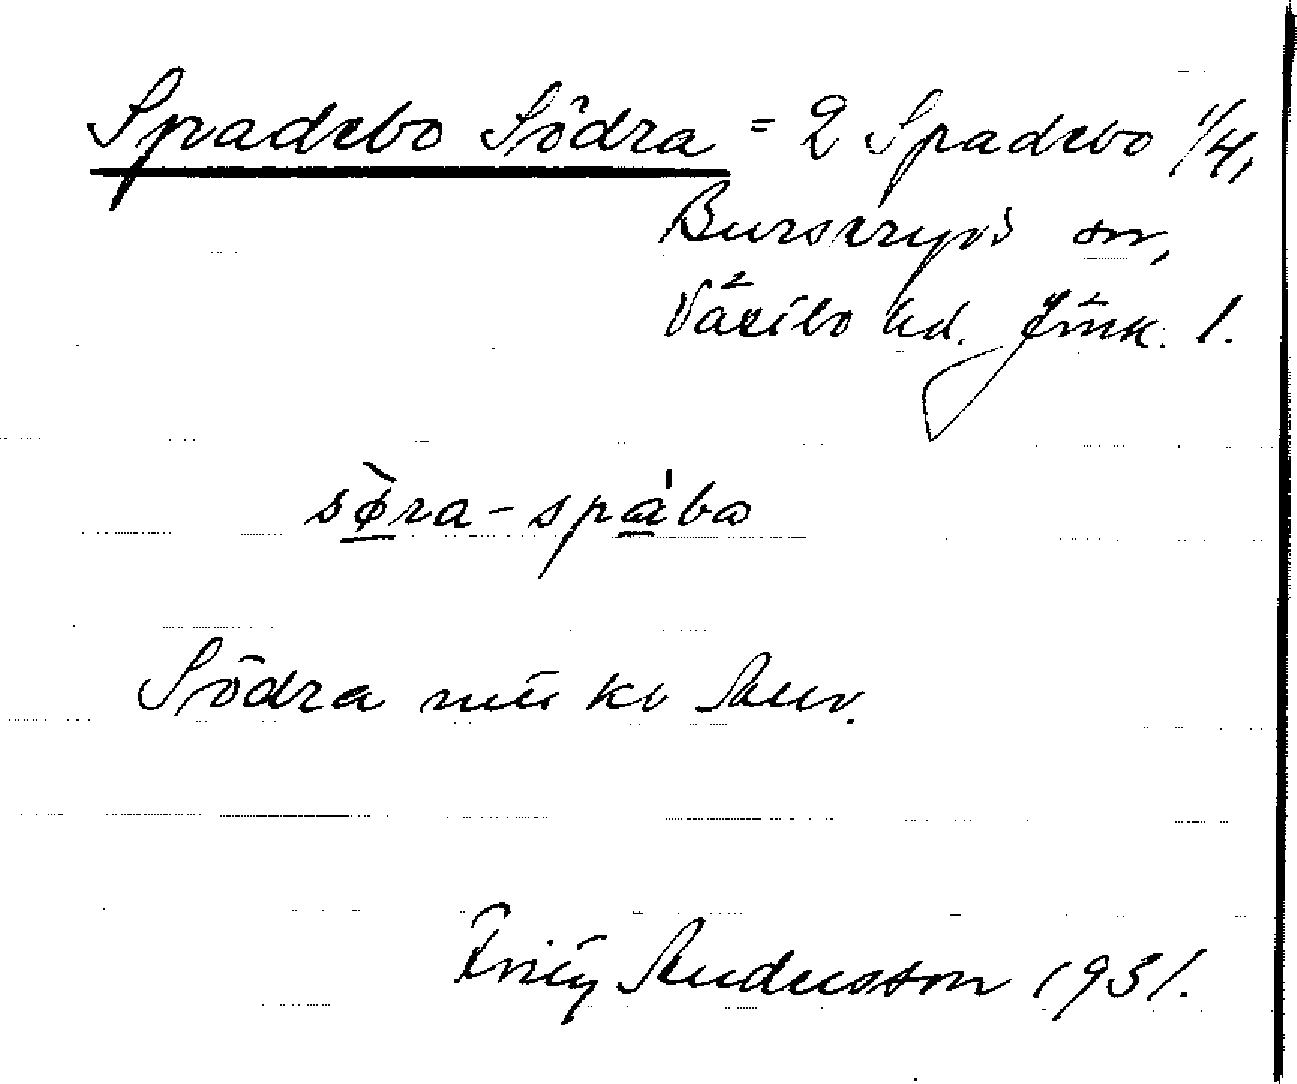 Spadebo Södra = 2 Spadebo 1/4,
Burseryds sn,
Västbo hd. Jönk. l.
sø̀ra-spába
Södra
Andersson 1931.